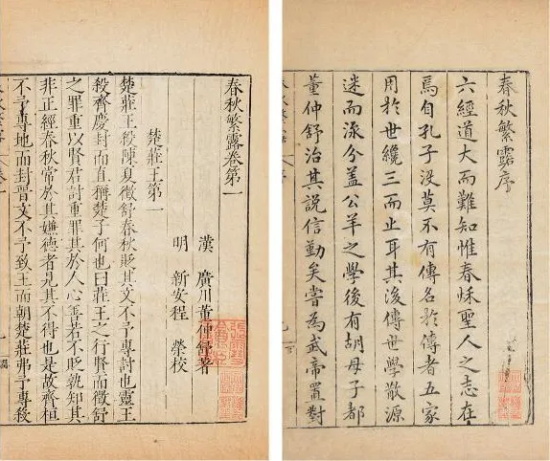 春秋繁露序
六經道大而難知惟春秌聖人之志在
焉自孔子没莫不有傳名於傳者五家
用於世纔三而止耳其後傳世學散源
迷而泒分蓋公羊之學後有胡母子都
董仲舒治其説信勤矣嘗為武帝置對
春秋繁露卷第一
漢 廣川董仲舒著
明 新安程 榮校
楚莊王第一
楚莊王殺陳夏徵舒春秋貶其文不予專討也靈王
殺齊慶封而直稱楚子何也曰莊王之行賢而徵舒
之罪重以賢君討重罪其於人心善若不貶孰知其
非正經春秋常於其嫌德者見其不得也是故齊桓
不予專地而封晉文不予致王而朝楚莊弗予專殺